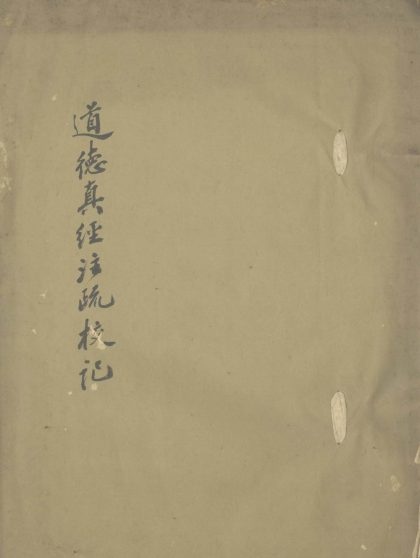 道德真經注疏校記